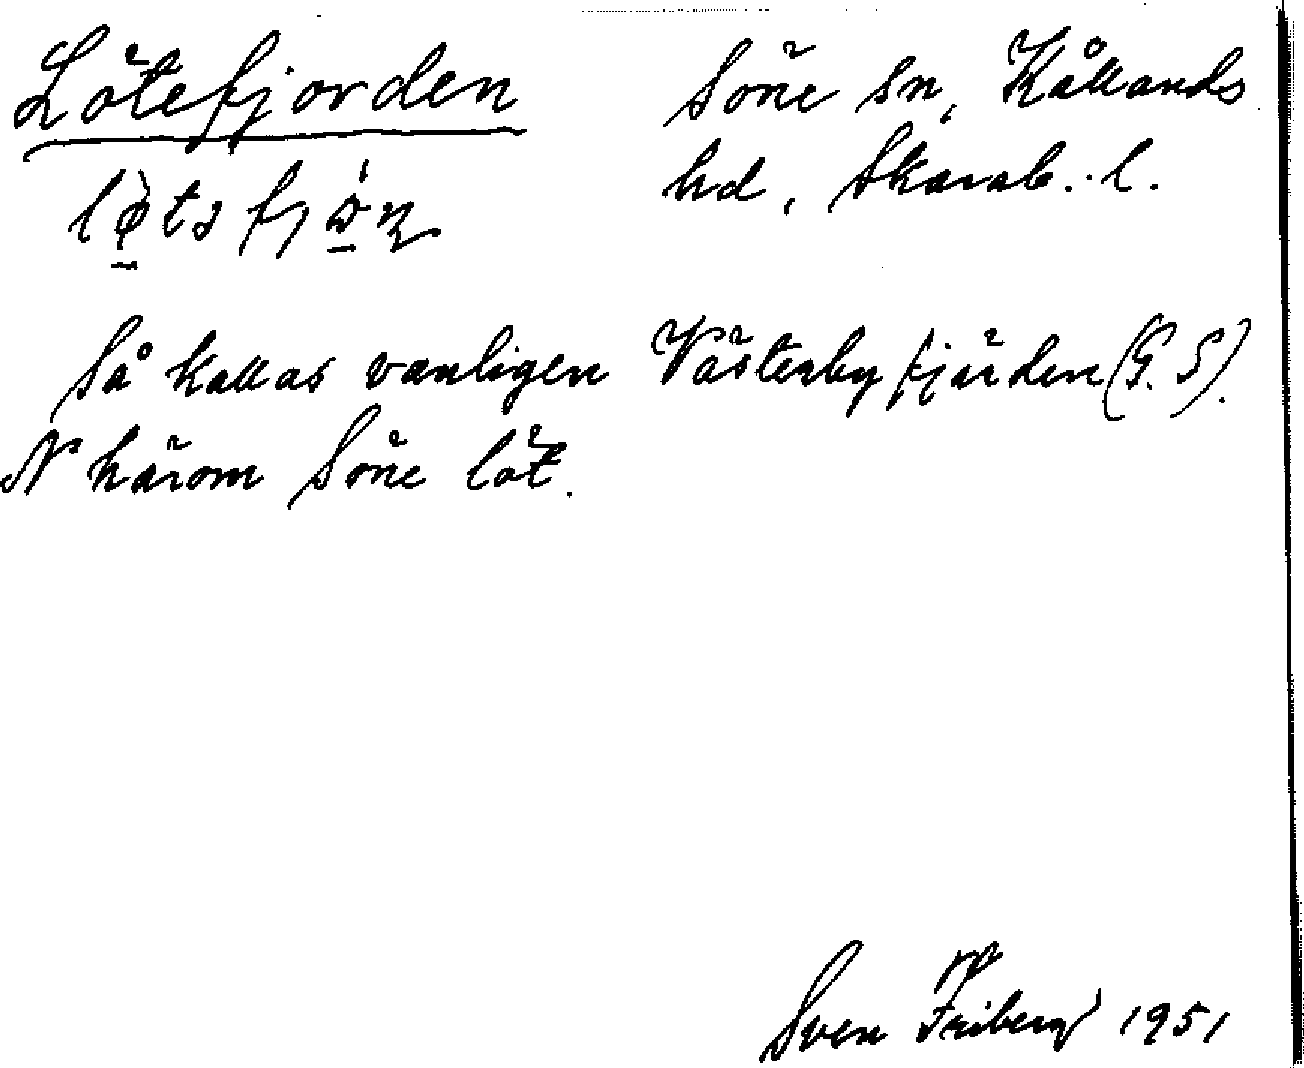 Lötefjorden
Söne sn, Kållands
hd, Skarab. l.
Så kallas vanligen Västerbyfjärden (G. S).
N härom Söne löt.
Sven Friberg 1951